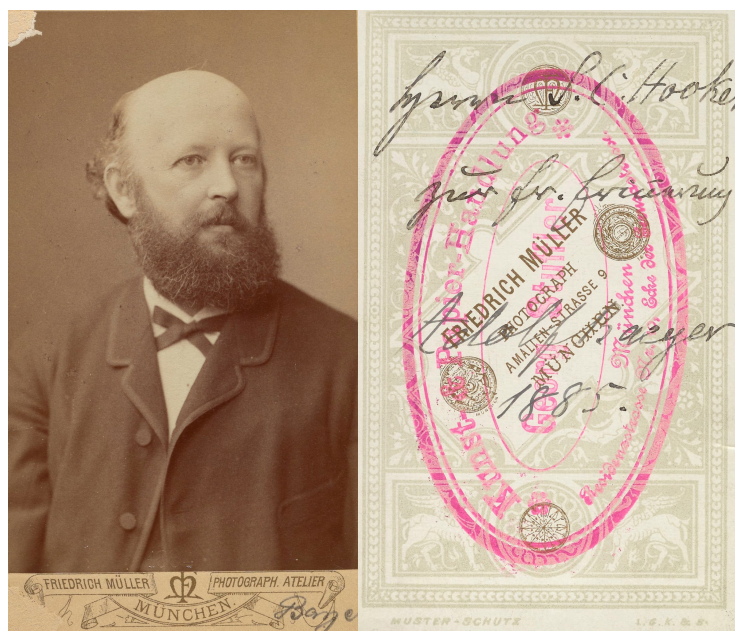 FRIEDRICH MÜLLER
M
PHOTOGRAPH. ATELIER
MÜNCHEN.
Herrn S. C. Hooker
zur fr. Erinnerung
Adolf Baeyer
1885.
Kunst- & Papier-Handlung
Georg Stuffler
München
FRIEDRICH MÜLLER
PHOTOGRAPH
AMALIEN-STRASSE 9
MÜNCHEN
MUSTER-SCHUTZ